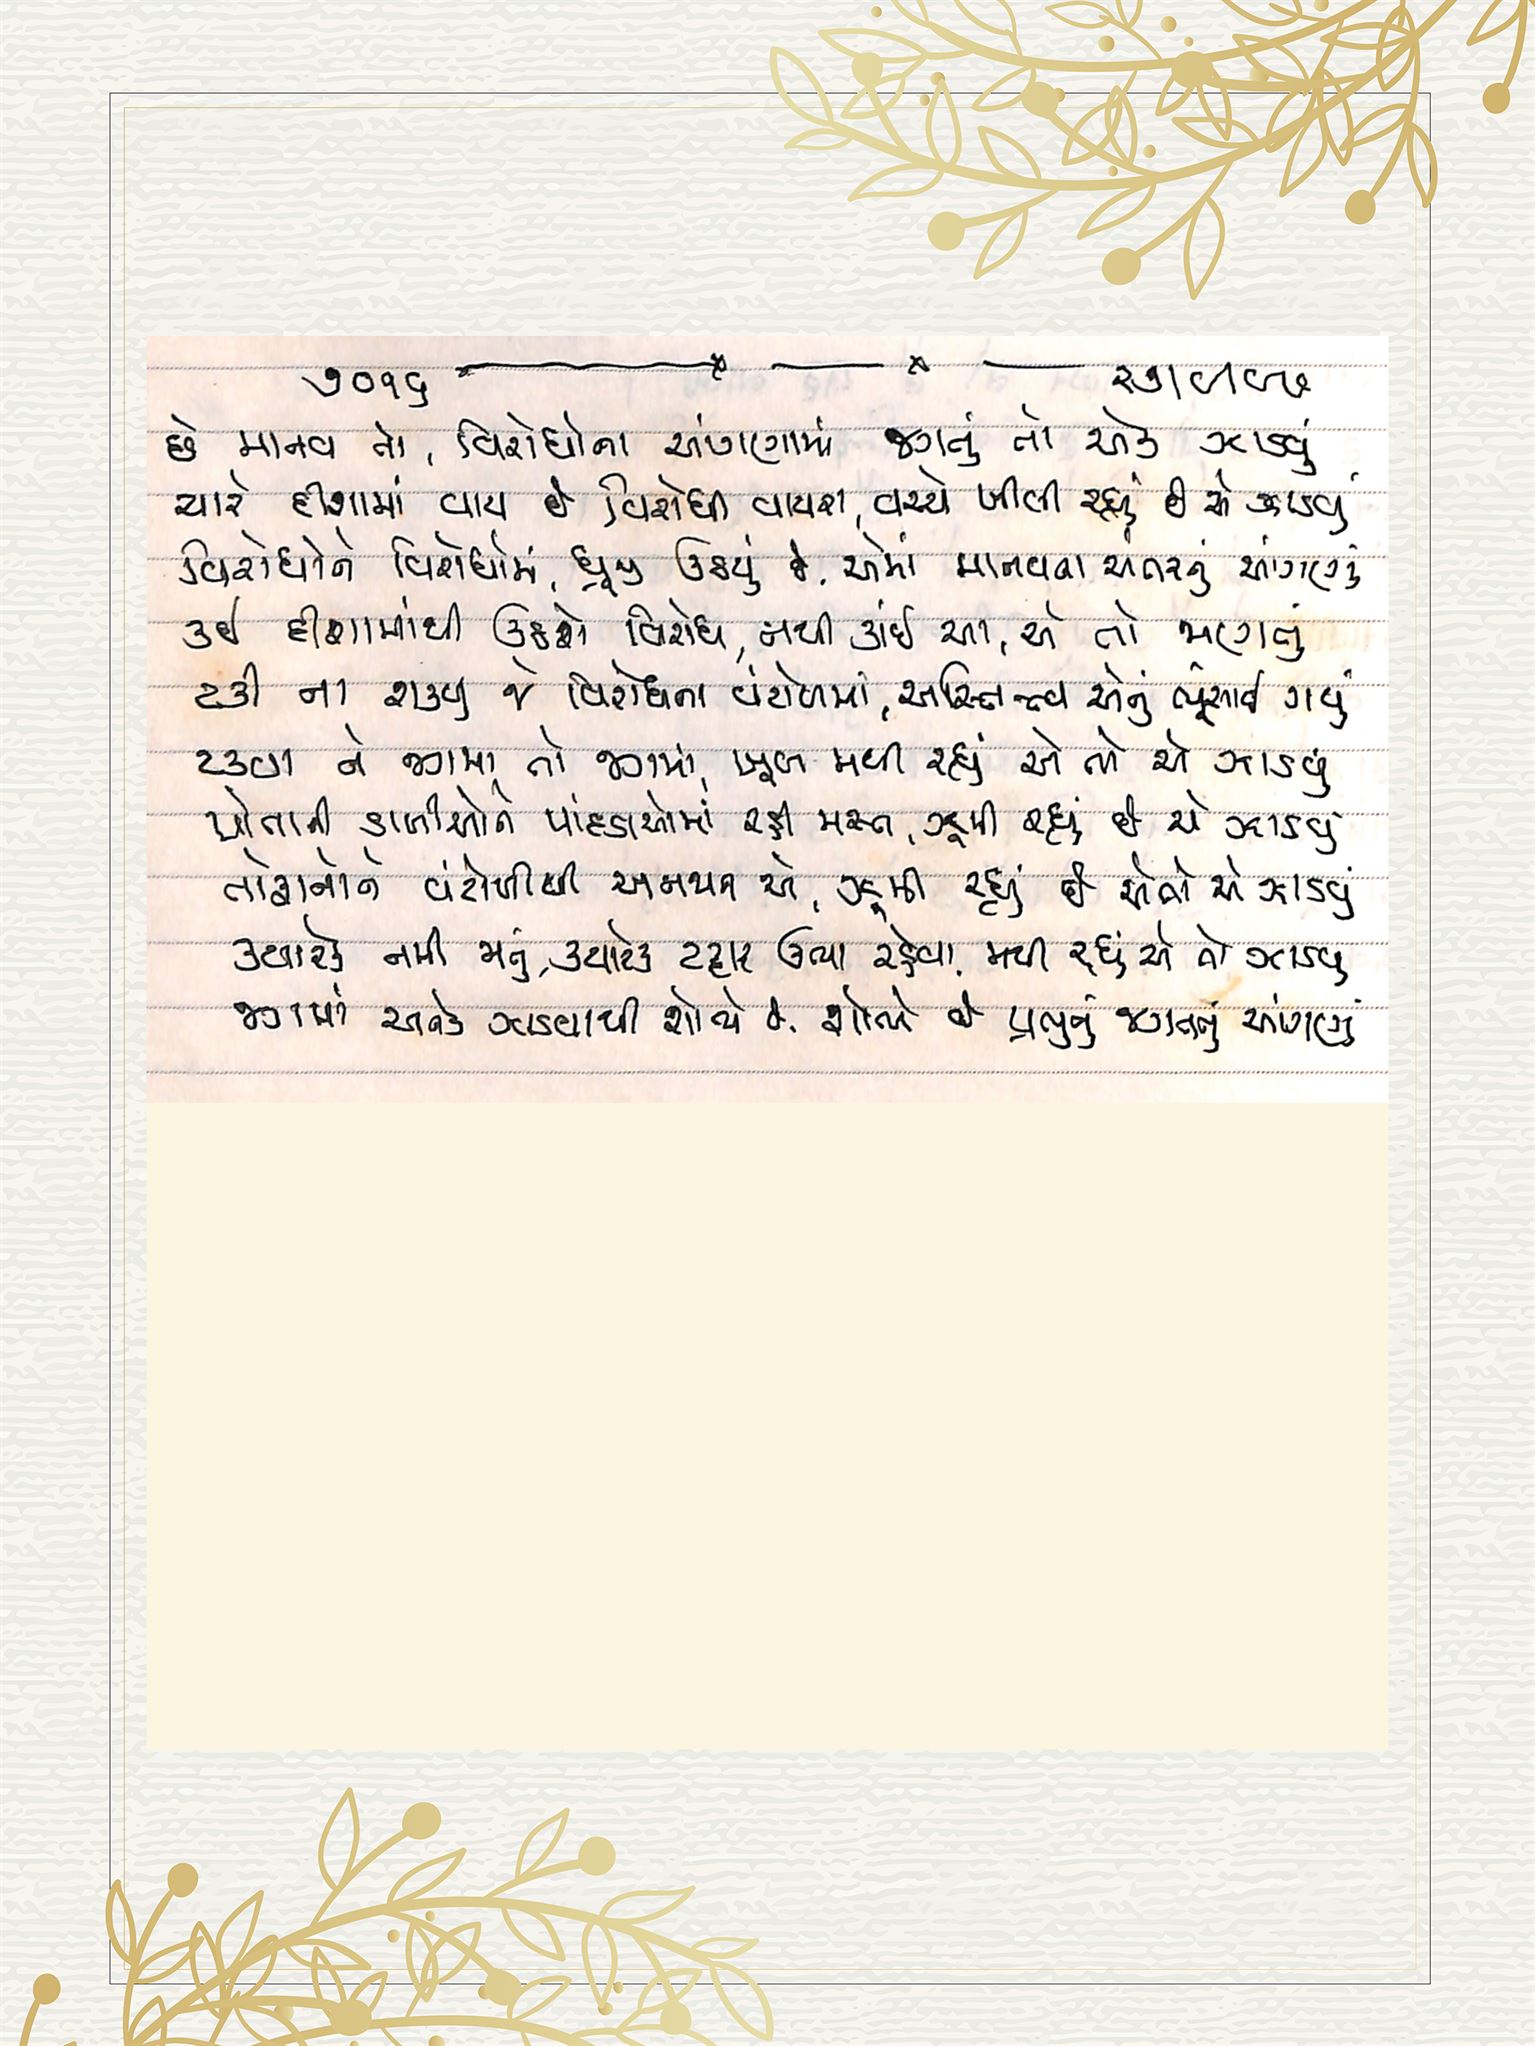 ૭૦૧૬
છે માનવ તો, વિરોધોના આંગણામાં જગનું તો એક ઝાડવું
ચારે દીશામાં વાય છે વિરોધી વાયરા, વચ્ચે ખીલી રહ્યું છે એ ઝાડવું
વિરોધોને વિરોધોમાં, ધ્રૂજી ઉઠયું છે, એમાં માનવના અંતરનું આંગણું
કઈ દીશામાંથી ઉઠશે વિરોધ, નથી કાંઈ આ, એ તો જાણતું
ટકી ના શક્યુ જે વિરોધના વંટોળમાં, અસ્તિત્વ એનું ભૂંસાઈ ગયું
ટકવા ને જગમા તો જગમાં, ખૂબ મથી રહ્યું એ તો એ ઝાડવું
પોતાની ડાળીઓને પાંદડાઓમાં રહી મસ્ત, ઝૂમી રહ્યું છે એ ઝાડવું
તોફાનોને વંટોળીથી અજાણ એ, ઝૂમી રહ્યું છે એતો એ ઝાડવું
ક્યારેક નમી જતું, ક્યારેક ટટ્ટાર ઉભા રહેવા, મથી રહ્યું એ તો ઝાડવુ
જગમાં અનેક ઝાડવાથી શોભે છે, શોભે છે પ્રભુનું જગતનું આંગણું